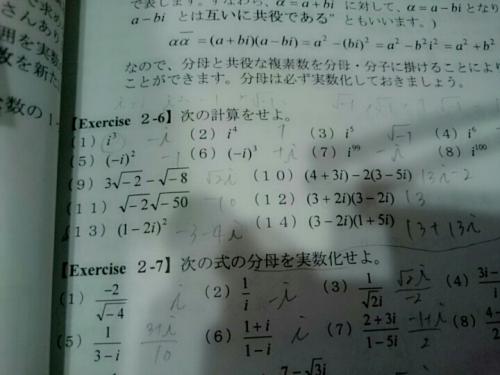 で表します。すなわち、α = a + bi に対して、α̅ = a − bi となり
a − bi とは互いに共役である” ともいいます。)
αα̅ = (a + bi)(a − bi) = a² − (bi)² = a² − b²i² = a² + b²
なので、分母と共役な複素数を分母・分子に掛けることにより
ことができます。分母は必ず実数化しておきましょう。
【Exercise 2-6】次の計算をせよ。
(1) i³ −i (2) i⁴ 1 (3) i⁵ √−1 (4) i⁶
(5) (−i)² −1 (6) (−i)³ +i (7) i⁹⁹ −i (8) i¹⁰⁰
(9) 3√−2 − √−8 √2i (10) (4+3i) − 2(3−5i) 13i−2
(11) √−2√−50 −10 (12) (3+2i)(3−2i) 13
(13) (1−2i)² −3−4i (14) (3−2i)(1+5i) 13+13i
【Exercise 2-7】次の式の分母を実数化せよ。
(1) −2/√−4 i (2) 1/i −i (3) 1/√2i √2i/−2 (4) 3i−
(5) 1/(3−i) 3+i/10 (6) (1+i)/(1−i) i (7) (2+3i)/(1−5i) −1+i/2 (8) 4−
7−√3i